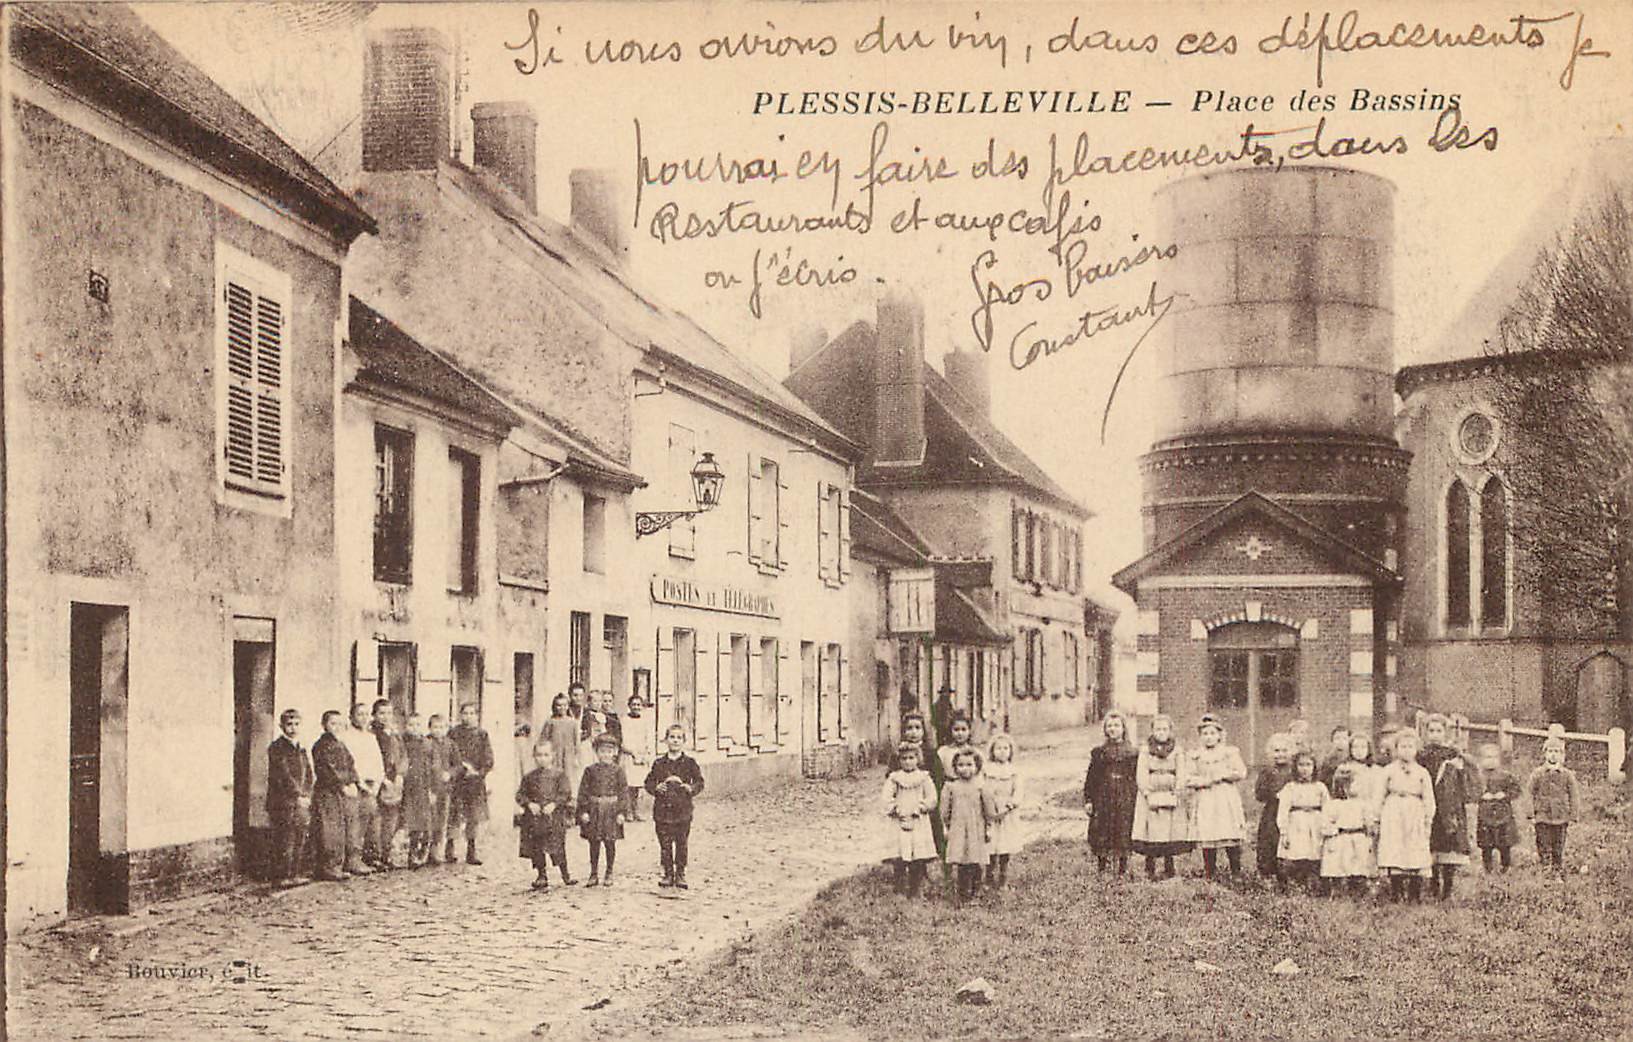 Si nous avions du vin, dans ces déplacements Je
PLESSIS-BELLEVILLE — Place des Bassins
pourrai en faire des placements, dans les
Restaurants et aux cafés
ou j'écris.
Gros baisers
Constant
POSTES ET TÉLÉGRAPHES
Bouvier, édit.